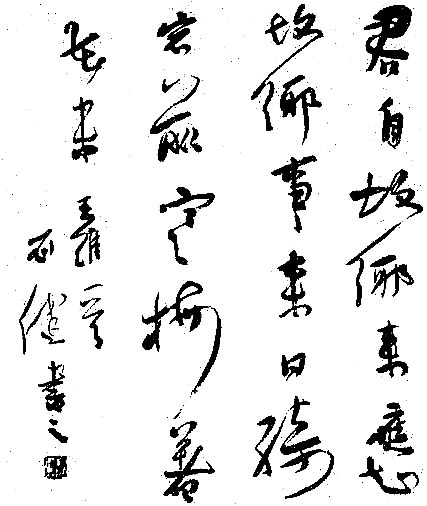 君自故鄉來應知
故鄉事來日綺
窗前寒梅著
花未 王維詩
書之